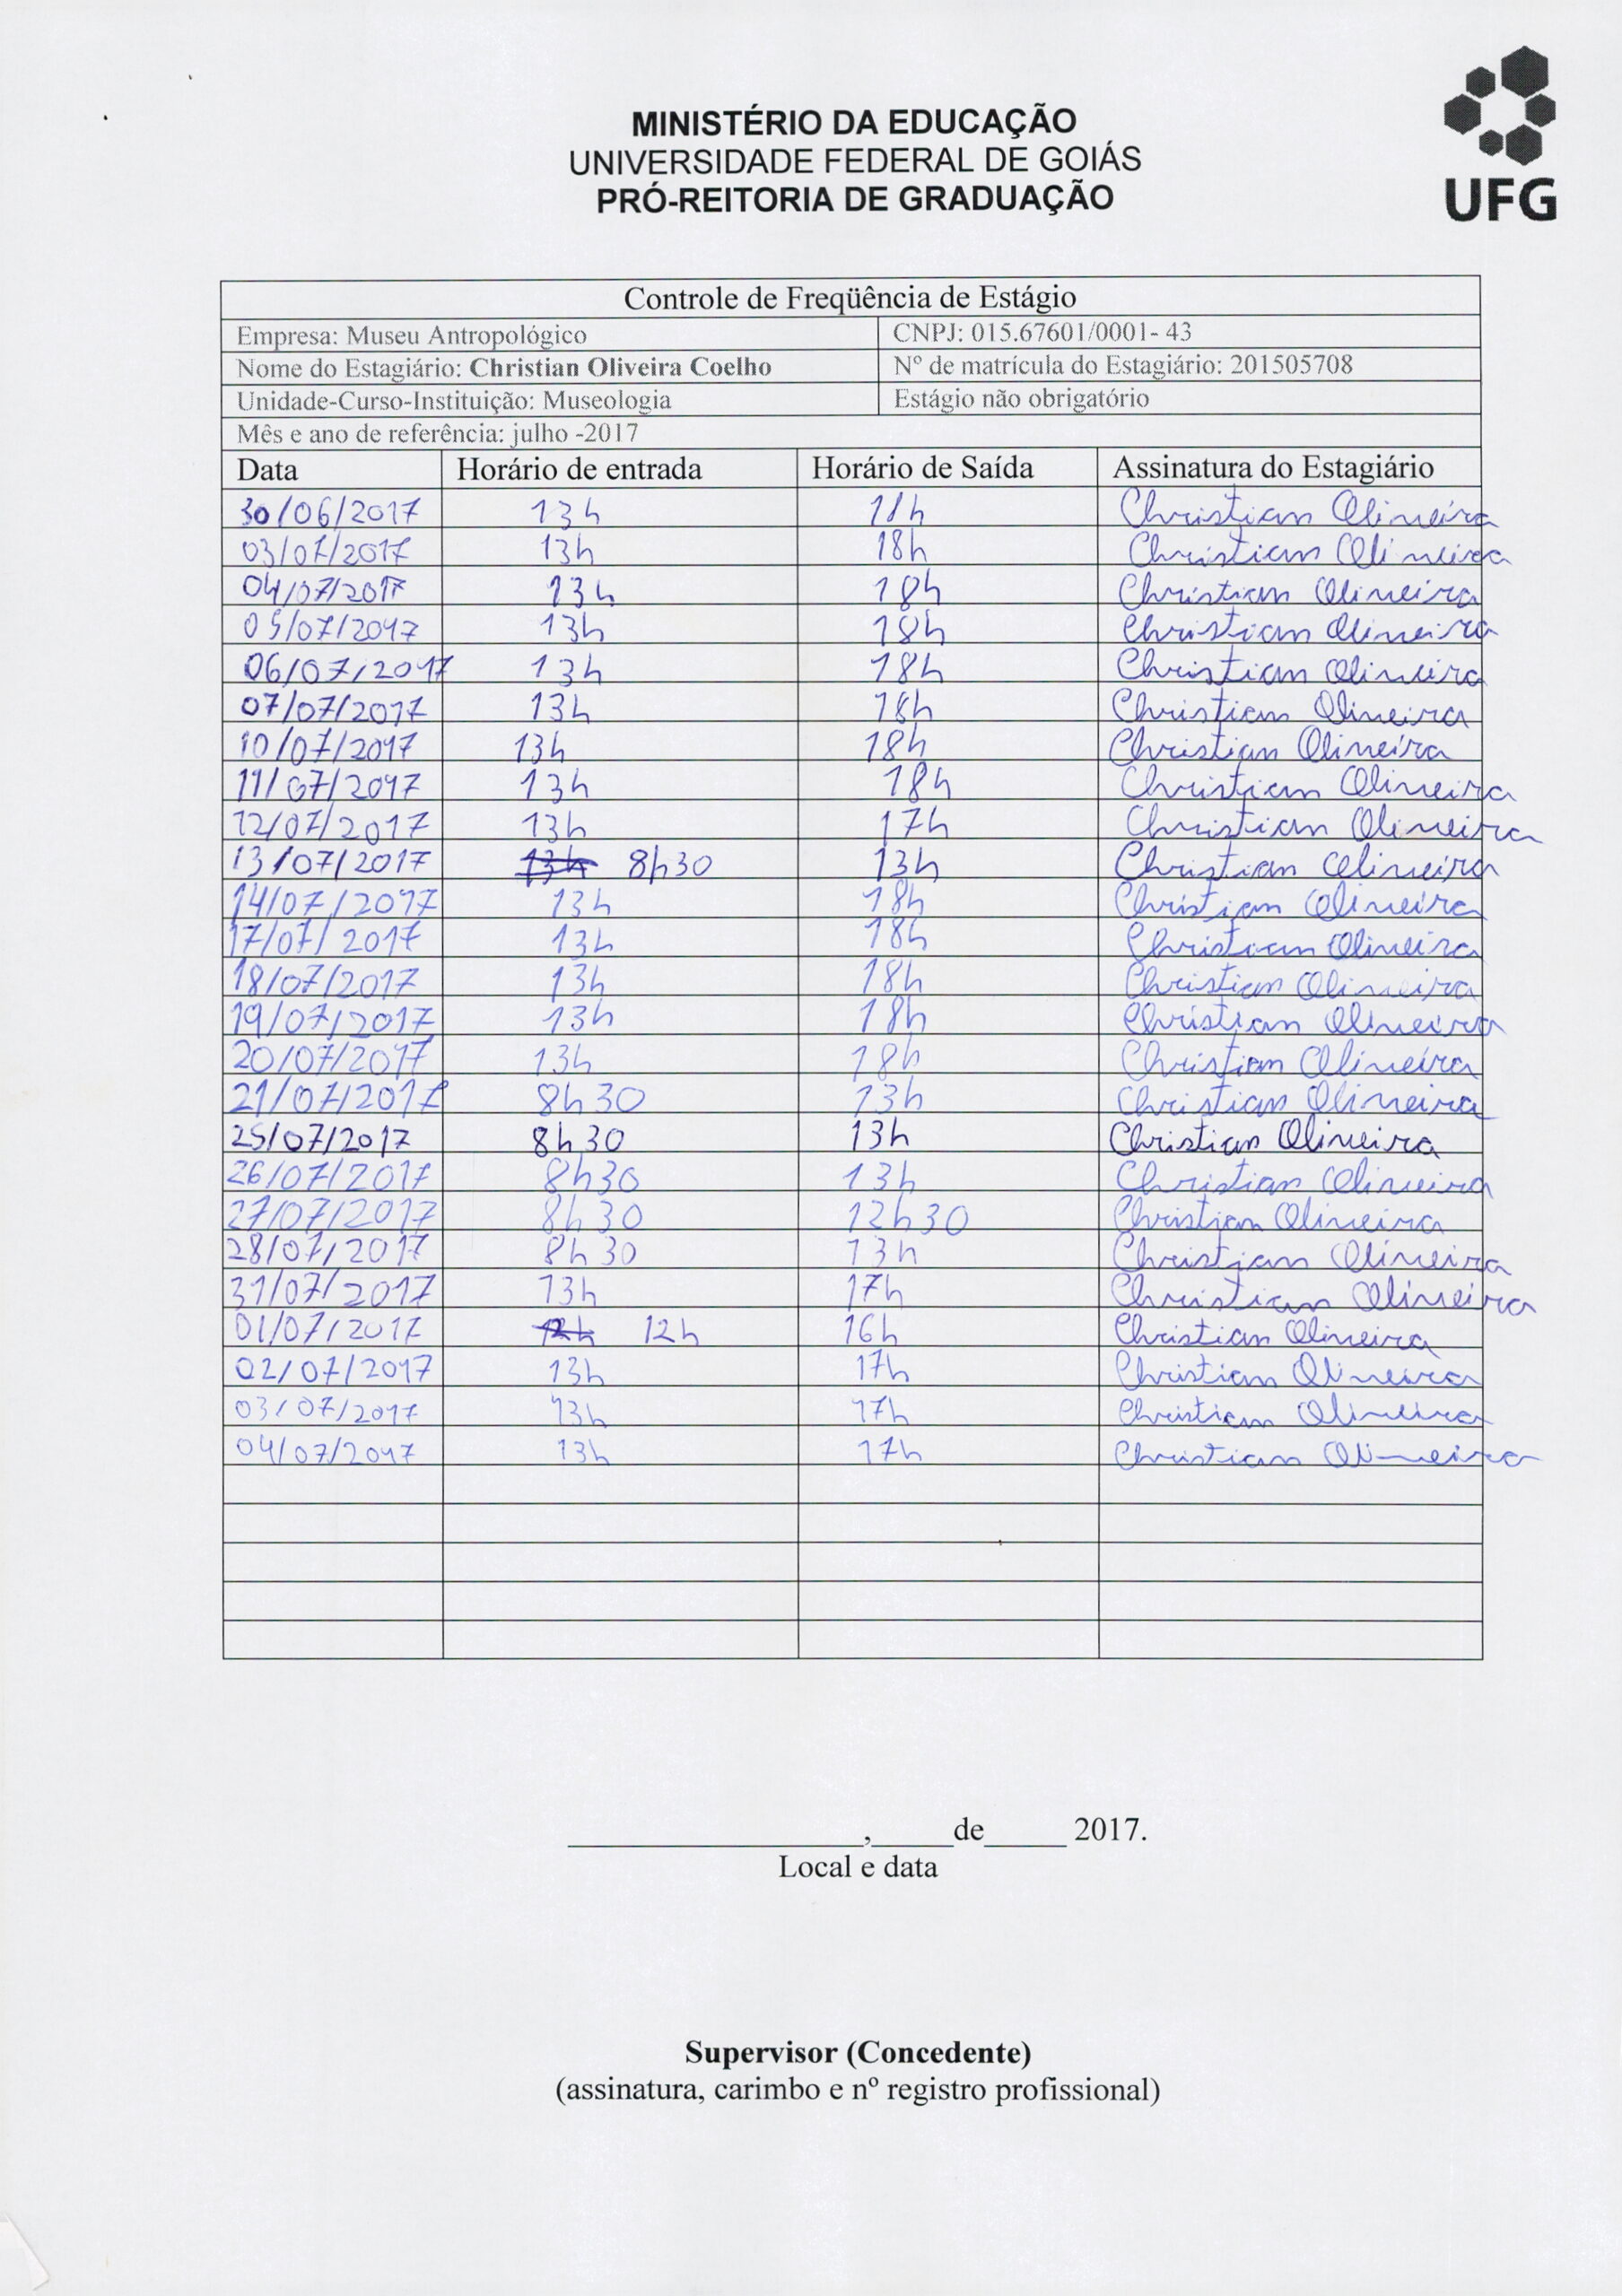 MINISTÉRIO DA EDUCAÇÃO
UNIVERSIDADE FEDERAL DE GOIÁS
PRÓ-REITORIA DE GRADUAÇÃO
UFG
Controle de Freqüência de Estágio
Empresa: Museu Antropológico CNPJ: 015.67601/0001- 43
Nome do Estagiário: Christian Oliveira Coelho Nº de matrícula do Estagiário: 201505708
Unidade-Curso-Instituição: Museologia Estágio não obrigatório
Mês e ano de referência: julho -2017
Data Horário de entrada Horário de Saída Assinatura do Estagiário
30/06/2017 13h 18h Christian Oliveira
03/07/2017 13h 18h Christian Oliveira
04/07/2017 13h 18h Christian Oliveira
05/07/2017 13h 18h Christian Oliveira
06/07/2017 13h 18h Christian Oliveira
07/07/2017 13h 18h Christian Oliveira
10/07/2017 13h 18h Christian Oliveira
11/07/2017 13h 18h Christian Oliveira
12/07/2017 13h 17h Christian Oliveira
13/07/2017 13h 8h30 13h Christian Oliveira
14/07/2017 13h 18h Christian Oliveira
17/07/2017 13h 18h Christian Oliveira
18/07/2017 13h 18h Christian Oliveira
19/07/2017 13h 18h Christian Oliveira
20/07/2017 13h 18h Christian Oliveira
21/07/2017 8h30 13h Christian Oliveira
25/07/2017 8h30 13h Christian Oliveira
26/07/2017 8h30 13h Christian Oliveira
27/07/2017 8h30 12h30 Christian Oliveira
28/07/2017 8h30 13h Christian Oliveira
31/07/2017 13h 17h Christian Oliveira
01/07/2017 12h 16h Christian Oliveira
02/07/2017 13h 17h Christian Oliveira
03/07/2017 13h 17h Christian Oliveira
04/07/2017 13h 17h Christian Oliveira
__________________,_____de_____ 2017.
Local e data
Supervisor (Concedente)
(assinatura, carimbo e nº registro profissional)